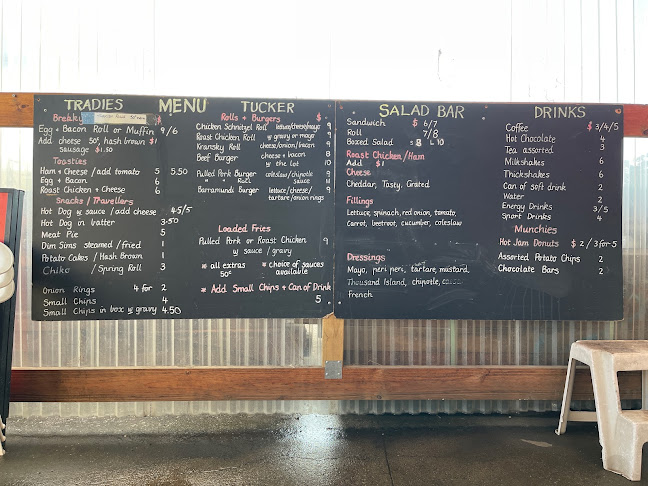 TRADIES MENU TUCKER
Breaky
Egg + Bacon Roll or Muffin 9/6
Add cheese 50¢, hash brown $1
sausage $1.50
Toasties
Ham + Cheese / add tomato 5 5.50
Egg + Bacon 6
Roast Chicken + Cheese 6
Snacks / Travellers
Hot Dog w sauce / add cheese 4.5/5
Hot Dog in batter 3.50
Meat Pie 5
Dim Sims steamed / fried 1
Potato Cakes / Hash Brown 1
Chiko / Spring Roll 3
Onion Rings 4 for 2
Small Chips 4
Small Chips in box w gravy 4.50
Rolls + Burgers $
Chicken Schnitzel Roll lettuce/cheese/mayo 9
Roast Chicken Roll w gravy or mayo 9
Kransky Roll cheese/onion/bacon 9
Beef Burger cheese + bacon 8
w the lot 10
Pulled Pork Burger coleslaw/chipotle 9
" " Roll sauce 11
Barramundi Burger lettuce/cheese/ 9
tartare/onion rings
Loaded Fries
Pulled Pork or Roast Chicken 9
w sauce / gravy
* all extras 50¢
* choice of sauces available
* Add Small Chips + Can of Drink
5
SALAD BAR
Sandwich $ 6/7
Roll 7/8
Boxed Salad S 8 L 10
Roast Chicken/Ham
Add $1
Cheese
Cheddar, Tasty, Grated
Fillings
Lettuce, spinach, red onion, tomato,
Carrot, beetroot, cucumber, coleslaw
Dressings
Mayo, peri peri, tartare, mustard,
Thousand Island, chipotle,
French
DRINKS
Coffee $ 3/4/5
Hot Chocolate 4
Tea assorted 3
Milkshakes 6
Thickshakes 6
Can of soft drink 2
Water 2
Energy Drinks 3/5
Sport Drinks 4
Munchies
Hot Jam Donuts $ 2/3 for 5
Assorted Potato Chips 2
Chocolate Bars 2